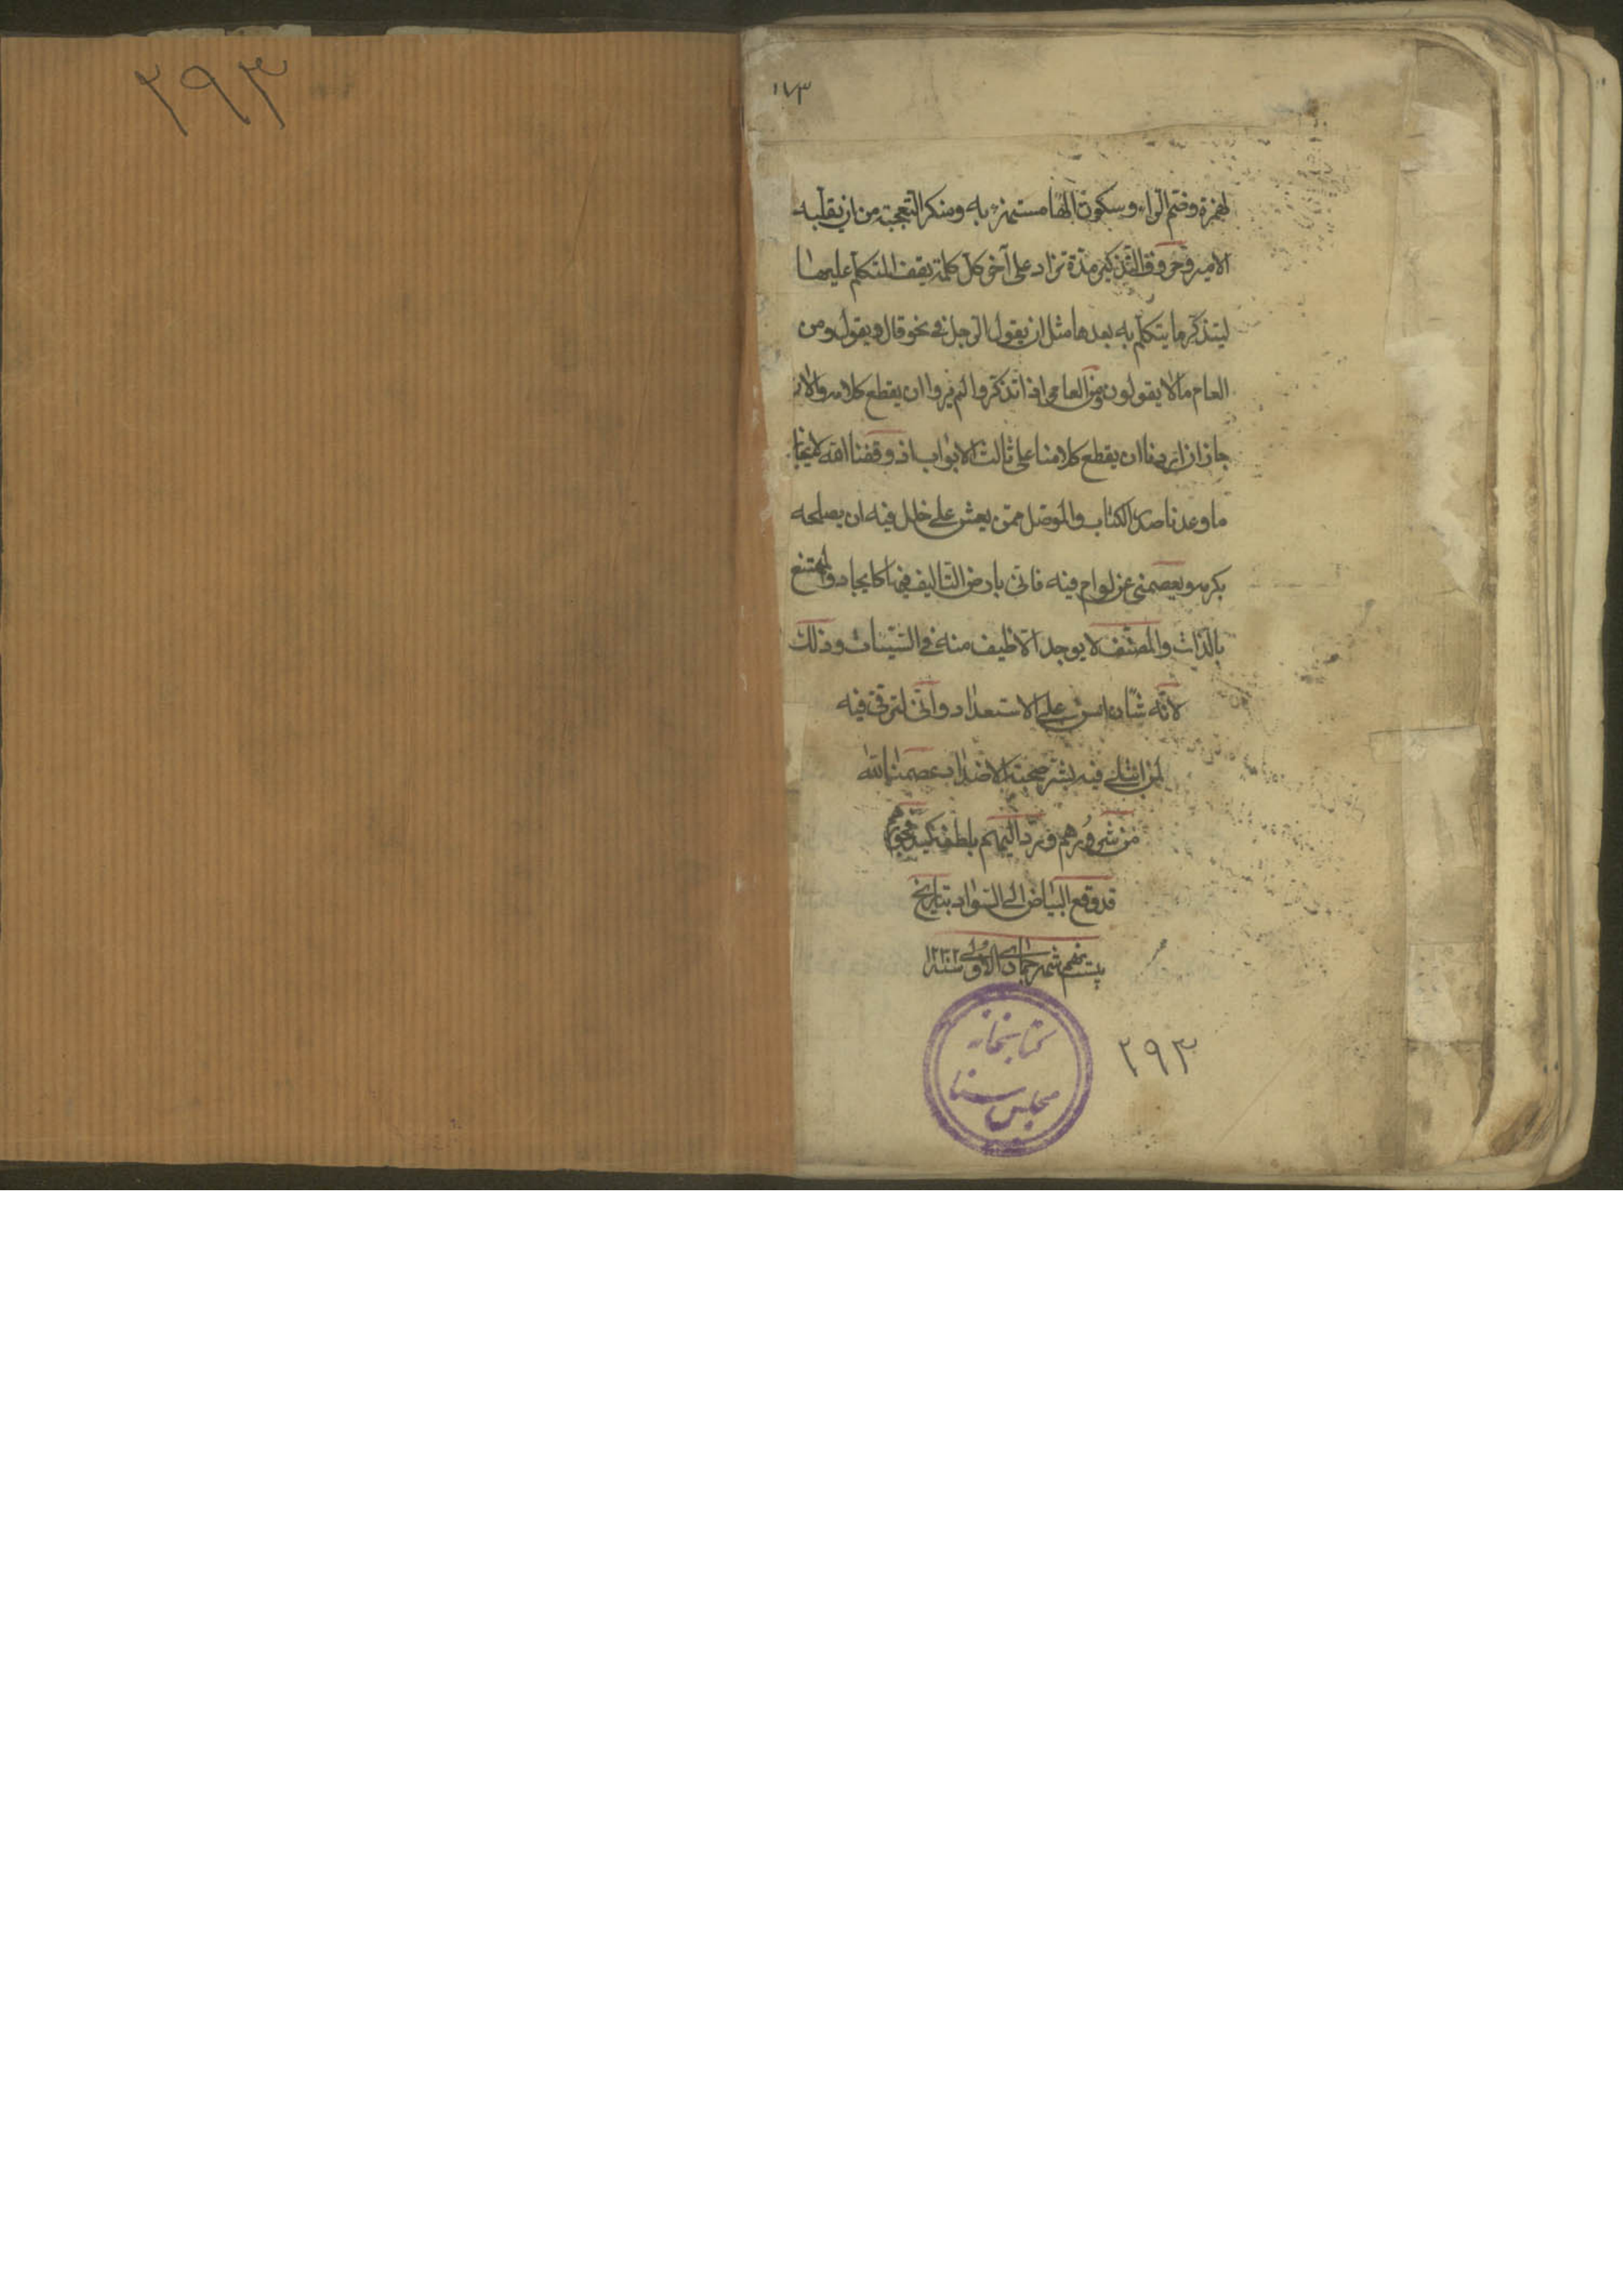 ٢٩٣
١٧٣
لهمزة وضم الراء وسكون الهاء مستهزء به ومنكر التعجبه من ان يقلبه
الامير وحروف التذكير مدة تزاد على آخر كل كلمة يقف المتكلم عليها
ليتذكر ما يتكلم به بعدها مثل ان يقول الرجل في نحو قال ويقول ومن
العام مالا يقولون ومن العامي اذا تذكروا لم يروا ان يقطع كلامه والان
جاز ان اردنا ان يقطع كلامنا على ثالث الابواب اذ وفقنا الله لانجاز
ما وعدنا صدر الكتاب والمؤمل ممن يعثر على خلل فيه ان يصلحه
بكرمه ويعصمني عن لوام فيه فاني بارض التاليف فيها كايجاد والممتنع
بالذات والمصنف لا يوجد الا طيف منه في السنينات وذلك
لانه شان اسس على الاستعداد واني لترقى فيه
لمن ابتلى فيه بشر صحبة الاضداد عصمنا الله
من شرورهم ورد اليهم بلطفه كيد نحورهم
قد وقع البياض الى السواد بتاريخ
بيستم شهر جمادى الاولى سنه ١٢٣٢
٢٩٣
كتابخانه
مجلس سنا